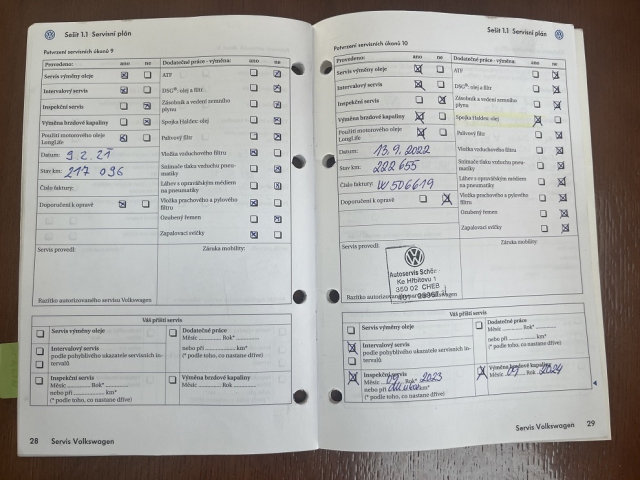 Sešit 1.1 Servisní plán
Potvrzení servisních úkonů 9
Provedeno: ano ne
Servis výměny oleje
Intervalový servis
Inspekční servis
Výměna brzdové kapaliny
Použití motorového oleje LongLife
Datum: 9.2.21
Stav km: 217 096
Číslo faktury:
Doporučení k opravě
Dodatečné práce - výměna: ano ne
ATF
DSG®: olej a filtr
Zásobník a vedení zemního plynu
Spojka Haldex: olej
Palivový filtr
Vložka vzduchového filtru
Snímače tlaku vzduchu pneumatiky
Láhev s opravářským médiem na pneumatiky
Vložka prachového a pylového filtru
Ozubený řemen
Zapalovací svíčky
Servis provedl:
Záruka mobility:
Razítko autorizovaného servisu Volkswagen
Váš příští servis
Servis výměny oleje
Intervalový servis
podle pohyblivého ukazatele servisních intervalů
Inspekční servis
Měsíc Rok*
nebo při km*
(* podle toho, co nastane dříve)
Dodatečné práce
Měsíc Rok*
nebo při km*
(* podle toho, co nastane dříve)
Výměna brzdové kapaliny
Měsíc Rok
28 Servis Volkswagen
Sešit 1.1 Servisní plán
Potvrzení servisních úkonů 10
Provedeno: ano ne
Servis výměny oleje
Intervalový servis
Inspekční servis
Výměna brzdové kapaliny
Použití motorového oleje LongLife
Datum: 13.9.2022
Stav km: 222 655
Číslo faktury: W506619
Doporučení k opravě
Dodatečné práce - výměna: ano ne
ATF
DSG®: olej a filtr
Zásobník a vedení zemního plynu
Spojka Haldex: olej
Palivový filtr
Vložka vzduchového filtru
Snímače tlaku vzduchu pneumatiky
Láhev s opravářským médiem na pneumatiky
Vložka prachového a pylového filtru
Ozubený řemen
Zapalovací svíčky
Servis provedl:
Záruka mobility:
Autoservis
Ke Hřbitovu 1
350 02 CHEB
Razítko autorizovaného
Váš příští servis
Servis výměny oleje
Intervalový servis
podle pohyblivého ukazatele servisních intervalů
Inspekční servis
Měsíc 09 Rok 2023
nebo při km*
(* podle toho, co nastane dříve)
Dodatečné práce
Měsíc Rok*
nebo při km*
(* podle toho, co nastane dříve)
Výměna brzdové kapaliny
Měsíc 09 Rok 2024
Servis Volkswagen 29